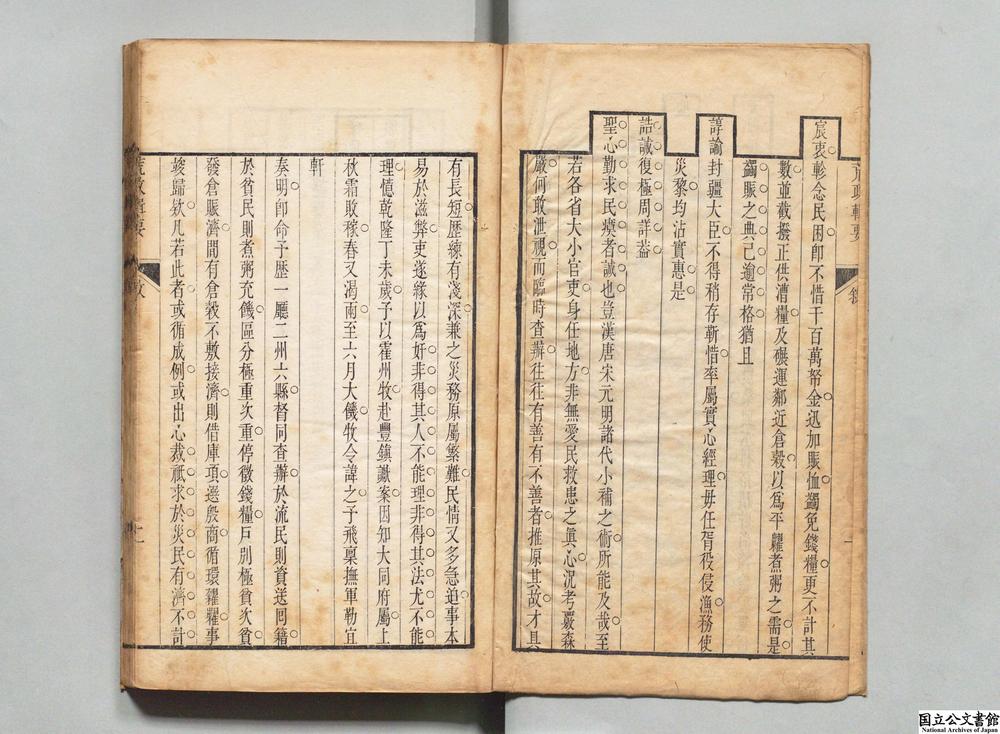 荒政輯要
敘
一
宸衷軫念民困卽不惜千百萬帑金迅加賑恤蠲免錢糧更不計其
數並截撥正供漕糧及碾運鄰近倉穀以爲平糶煮粥之需是
蠲賑之典已逾常格猶且
諄諭封疆大臣不得稍存靳惜率屬實心經理毋任胥役侵漁務使
災黎均沾實惠是
誥誡復極周詳葢
聖心勤求民瘼者誠也豈漢唐宋元明諸代小補之術所能及哉至
若各省大小官吏身任地方非無愛民救患之眞心況考覈森
嚴何敢泄視而臨時查辦往往有善有不善者推原其故才具
有長短歷練有淺深兼之災務原屬繁難民情又多急迫事本
易於滋弊吏遂緣以爲奸非得其人不能理非得其法尤不能
理憶乾隆丁未歲予以霍州牧赴豐鎮讞案因知大同府屬上
秋霜敗稼春又渴雨至六月大饑牧令諱之予飛稟撫軍勒宜
軒
奏明卽命予歷一廳二州六縣督同查辦於流民則資送囘籍
於貧民則煮粥充饑區分極重次重停徵錢糧戸別極貧次貧
發倉賑濟間有倉穀不敷接濟則借庫項選殷商循環糴糶事
竣歸欵凡若此者或循成例或出心裁祇求於災民有濟不計
荒政輯要
敘
二
国立公文書館
National Archives of Japan